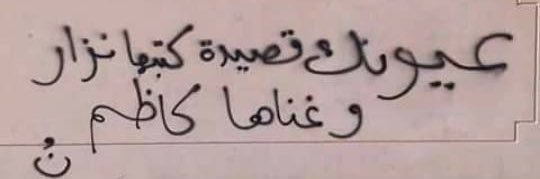 عيونك قصيدة كتبها نزار
وغناها كاظم
ن